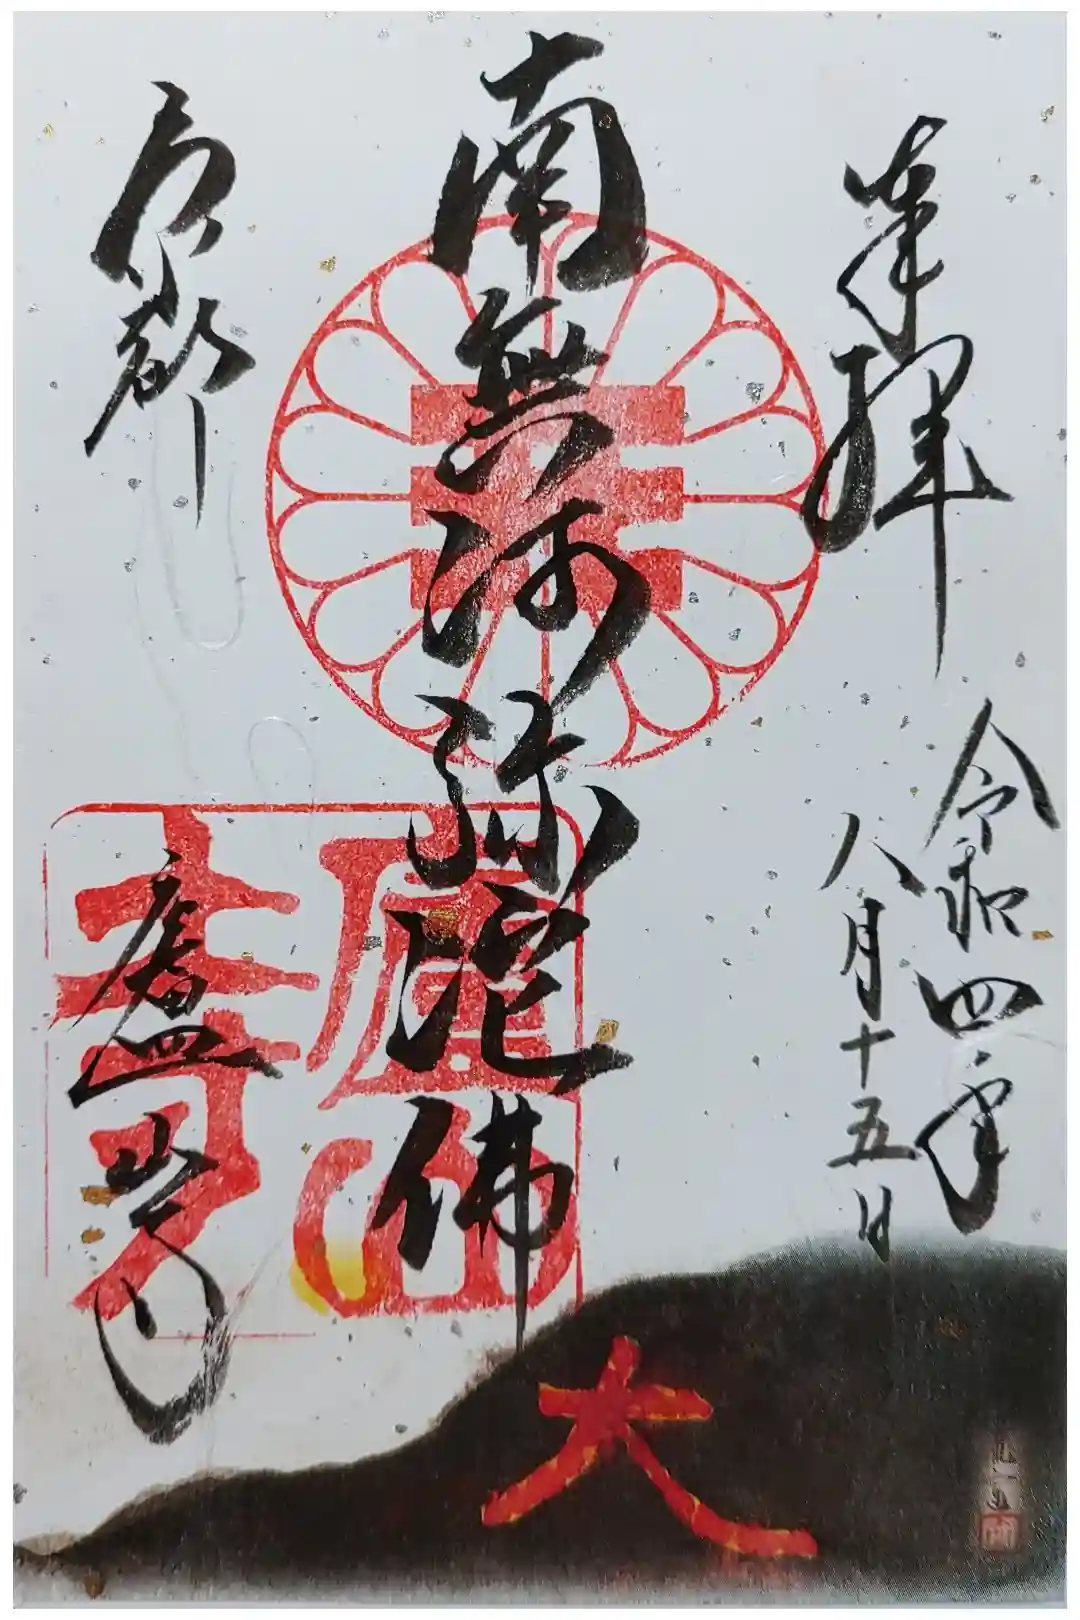 奉拝
令和四年
八月十五日
南無阿弥陀佛
京都
廬山寺
廬山
寺
大